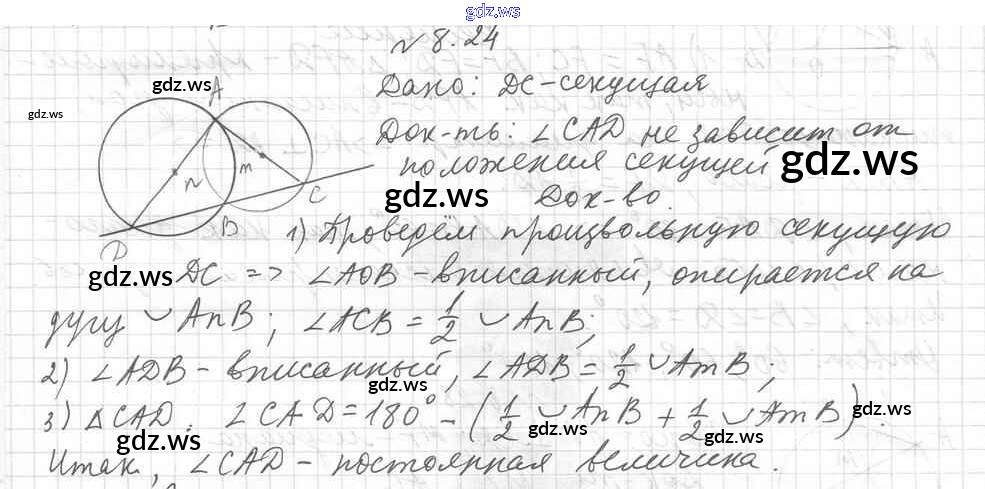 gdz.ws
№ 8.24
gdz.ws
gdz.ws
Дано: DC-секущая
Док-ть: ∠CAD не зависит от
положения секущей gdz.ws
gdz.ws
Док-во.
A
n
m
C
B
D
1) Проведём произвольную секущую
gdz.ws DC => ∠AOB - вписанный, опирается на
дугу ◡ AnB; ∠ACB = 1/2 ◡ AnB;
2) ∠ADB - вписанный, ∠ADB = 1/2 ◡ AmB;
gdz.ws
3) △CAD. ∠CAD = 180° - (1/2 ◡ AnB + 1/2 ◡ AmB).
gdz.ws gdz.ws gdz.ws gdz.ws
Итак, ∠CAD - постоянная величина.